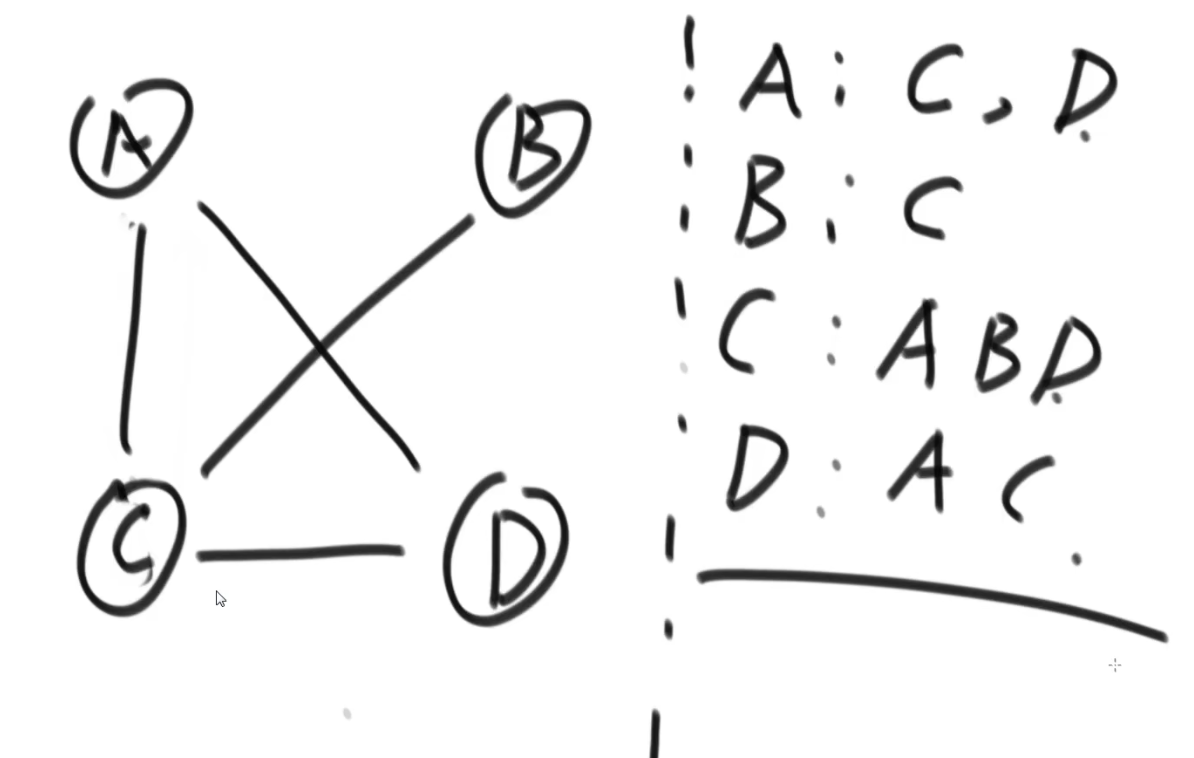 A
B
C
D
A : C , D
B : C
C : A B D
D : A C